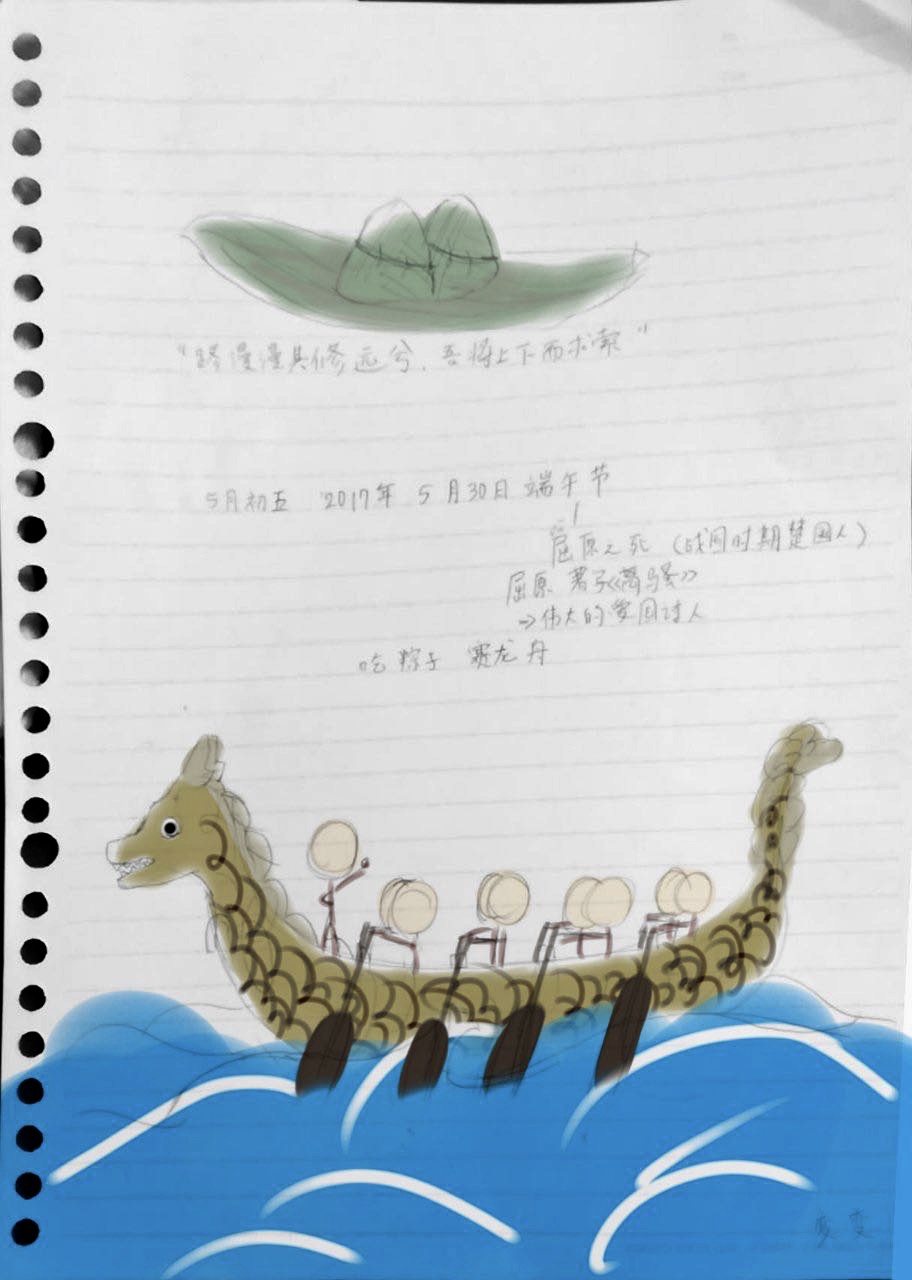 "路漫漫其修远兮，吾将上下而求索"
5月初五 2017年 5月30日 端午节
屈原之死 (战国时期楚国人)
屈原 著了《离骚》
→伟大的爱国诗人
吃粽子 赛龙舟